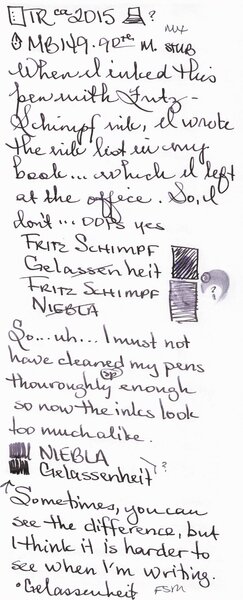 TR ca 2015 ?
MB149.90th, M. STUB
When I inked this
pen with Fritz-
Schimpf ink, I wrote
the ink list in my
book... which I left
at the office. So, I
don't... OOPS yes
FRITZ SCHIMPF
Gelassenheit
FRITZ SCHIMPF
NIEBLA
?
So... uh... I must not
have cleaned my pens
thouroughly enough
sp
so now the inks look
too much alike.
NIEBLA
Gelassenheit
?
Sometimes, you can
see the difference, but
I think it is harder to
see when I'm writing.
• Gelassenheit FSM